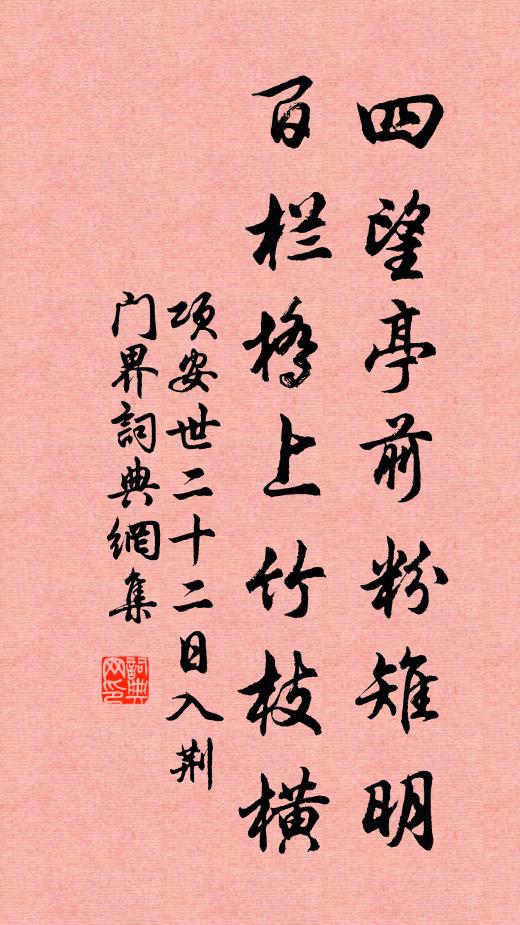 四望亭前粉雉明
百栏桥上竹枝横
项安世二十二日入荆
门界词典網集
詞典网印